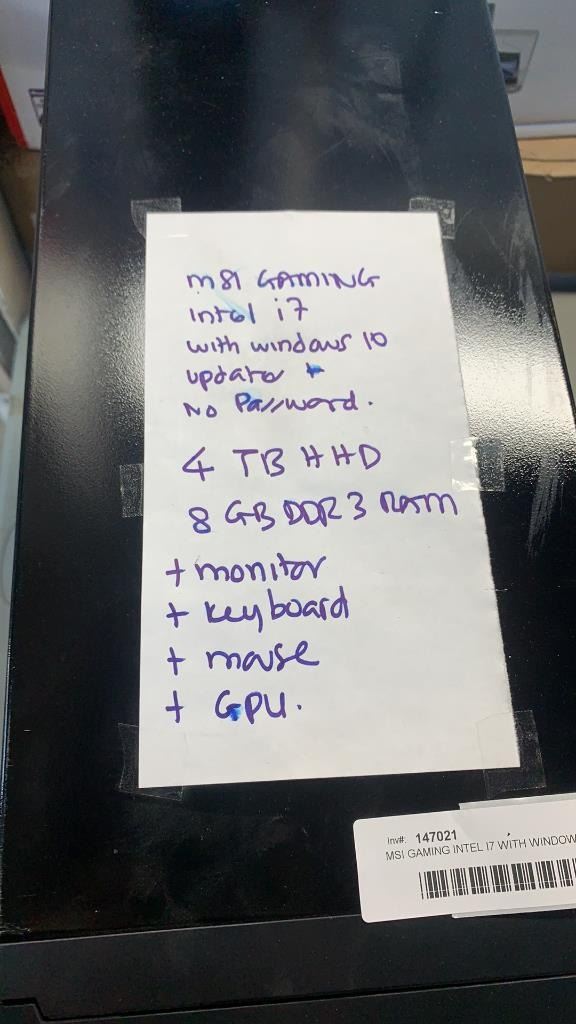 MSI GAMING
Intel i7
with windows 10
updater +
No Password.
4 TB HHD
8 GB DDR3 RAM
+ monitor
+ keyboard
+ mouse
+ GPU.
Inv#: 147021
MSI GAMING INTEL I7 WITH WINDOW